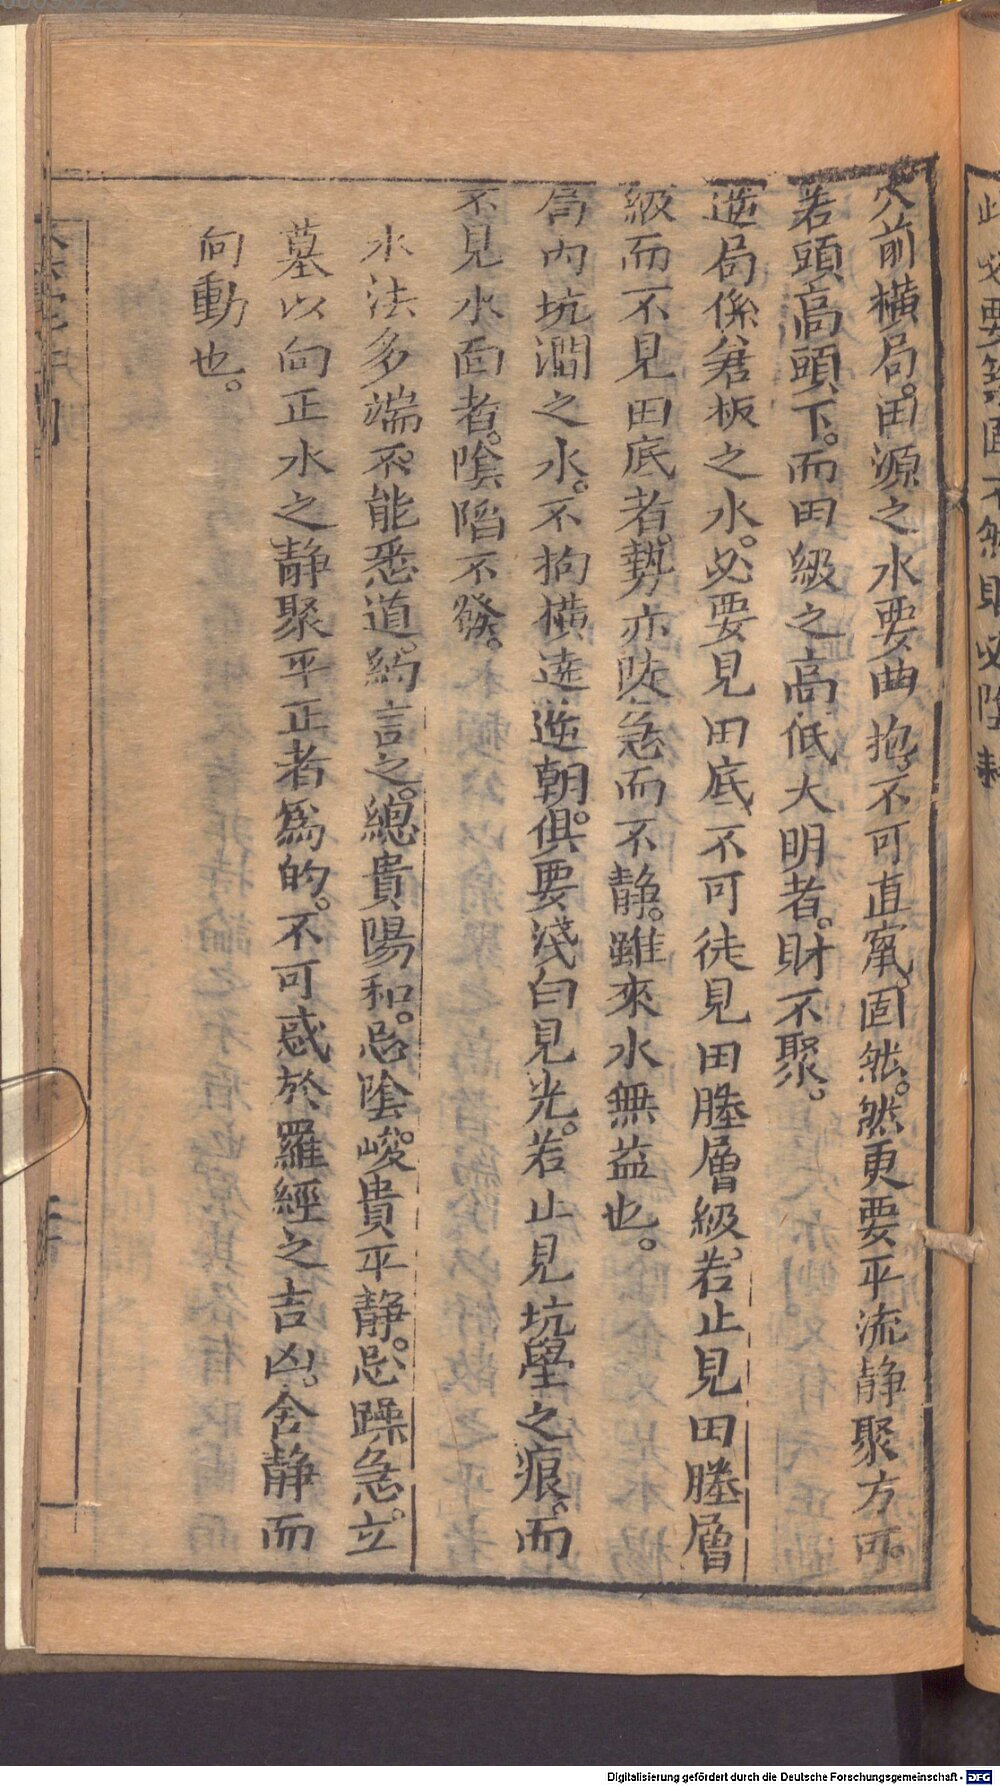 穴前橫局。田源之水要曲抱。不可直竄。固然。然更要平流靜聚方可。
若頭高頭下。而田級之高低大明者。財不聚。
逆局係倉板之水。必要見田底不可徒見田塍層級。若止見田塍層
級而不見田底者。勢亦陡急而不靜。雖來水無益也。
局內坑澗之水。不拘橫遶逆朝。俱要淺白見光。若止見坑壑之痕。而
不見水面者。陰陷不發。
水法多端。不能悉道。約言之。總貴陽和。忌陰峻。貴平靜。忌躁急。立
墓以向正水之靜聚平正者爲的。不可惑於羅經之吉凶。舍靜而
向動也。
Digitalisierung gefördert durch die Deutsche Forschungsgemeinschaft - DFG